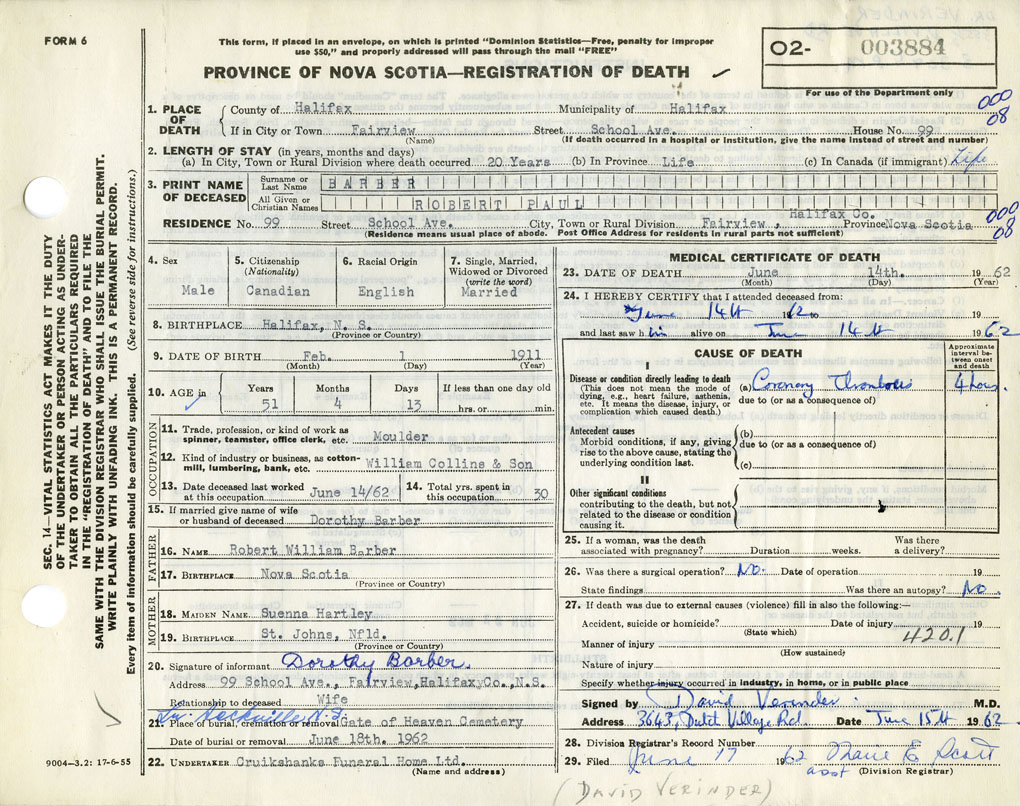 FORM 6
This form, if placed in an envelope, on which is printed "Dominion Statistics—Free, penalty for improper
use $50," and properly addressed will pass through the mail "FREE"
PROVINCE OF NOVA SCOTIA—REGISTRATION OF DEATH
O2- 003884
For use of the Department only
000
08
1. PLACE OF DEATH County of Halifax Municipality of Halifax
If in City or Town Fairview Street School Ave. House No. 99
(Name) (If death occurred in a hospital or institution, give the name instead of street and number)
2. LENGTH OF STAY (in years, months and days)
(a) In City, Town or Rural Division where death occurred 20 Years (b) In Province Life (c) In Canada (if immigrant) Life
3. PRINT NAME OF DECEASED Surname or Last Name BARBER
All Given or Christian Names ROBERT PAUL
Halifax Co.
RESIDENCE No. 99 Street School Ave. City, Town or Rural Division Fairview, Province Nova Scotia
(Residence means usual place of abode. Post Office Address for residents in rural parts not sufficient)
000
08
4. Sex Male
5. Citizenship (Nationality) Canadian
6. Racial Origin English
7. Single, Married, Widowed or Divorced (write the word) Married
8. BIRTHPLACE Halifax, N. S.
(Province or Country)
9. DATE OF BIRTH Feb. 1 1911
(Month) (Day) (Year)
10. AGE in Years Months Days If less than one day old
51 4 13 hrs. or min.
OCCUPATION
11. Trade, profession, or kind of work as
spinner, teamster, office clerk, etc. Moulder
12. Kind of industry or business, as cotton-
mill, lumbering, bank, etc. William Collins & Son
13. Date deceased last worked at this occupation June 14/62
14. Total yrs. spent in this occupation 30
15. If married give name of wife
or husband of deceased Dorothy Barber
FATHER
16. NAME Robert William Barber
17. BIRTHPLACE Nova Scotia
(Province or Country)
MOTHER
18. MAIDEN NAME Suenna Hartley
19. BIRTHPLACE St. Johns, Nfld.
(Province or Country)
20. Signature of informant Dorothy Barber.
Address 99 School Ave., Fairview, Halifax Co., N.S.
Relationship to deceased Wife
Lr. Sackville N.S.
21. Place of burial, cremation or removal Gate of Heaven Cemetery
Date of burial or removal June 18th. 1962
22. UNDERTAKER Cruikshanks Funeral Home Ltd.
(Name and address)
9004—3.2: 17-6-55
MEDICAL CERTIFICATE OF DEATH
23. DATE OF DEATH June 14th. 1962
(Month) (Day) (Year)
24. I HEREBY CERTIFY that I attended deceased from:
June 14th 62 to 19
and last saw him alive on June 14th 1962
CAUSE OF DEATH
Approximate interval between onset and death
I
Disease or condition directly leading to death
(This does not mean the mode of
dying, e.g., heart failure, asthenia,
etc. It means the disease, injury, or
complication which caused death.)
(a) Coronary Thrombosis 4 hours.
due to (or as a consequence of)
Antecedent causes
Morbid conditions, if any, giving
rise to the above cause, stating the
underlying condition last.
(b)
due to (or as a consequence of)
(c)
II
Other significant conditions
contributing to the death, but not
related to the disease or condition
causing it.
25. If a woman, was the death Was there
associated with pregnancy? Duration weeks. a delivery?
26. Was there a surgical operation? No. Date of operation 19
State findings Was there an autopsy? No.
27. If death was due to external causes (violence) fill in also the following:—
Accident, suicide or homicide? Date of injury 19
(State which)
420.1
Manner of injury
(How sustained)
Nature of injury
Specify whether injury occurred in industry, in home, or in public place
Signed by David Verinder. M.D.
Address 3643, Dutch Village Rd Date June 15th 1962
28. Division Registrar's Record Number
29. Filed June 17 1962 Marie E Scott
asst (Division Registrar)
(DAVID VERINDER)
SEC. 14—VITAL STATISTICS ACT MAKES IT THE DUTY
OF THE UNDERTAKER OR PERSON ACTING AS UNDER-
TAKER TO OBTAIN ALL THE PARTICULARS REQUIRED
IN THE "REGISTRATION OF DEATH" AND TO FILE THE
SAME WITH THE DIVISION REGISTRAR WHO SHALL ISSUE THE BURIAL PERMIT.
WRITE PLAINLY WITH UNFADING INK. THIS IS A PERMANENT RECORD.
Every item of information should be carefully supplied. (See reverse side for instructions.)